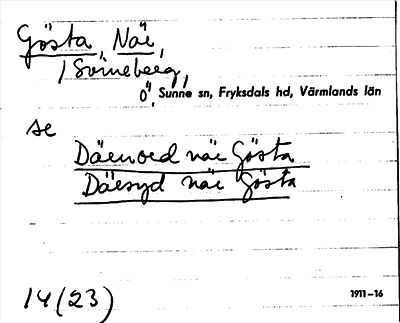 Gösta, När,
/ Svineberg,
Ö, Sunne sn, Fryksdals hd, Värmlands län
se
Därnord när Gösta
Därsyd när Gösta
14 (23)
1911–16